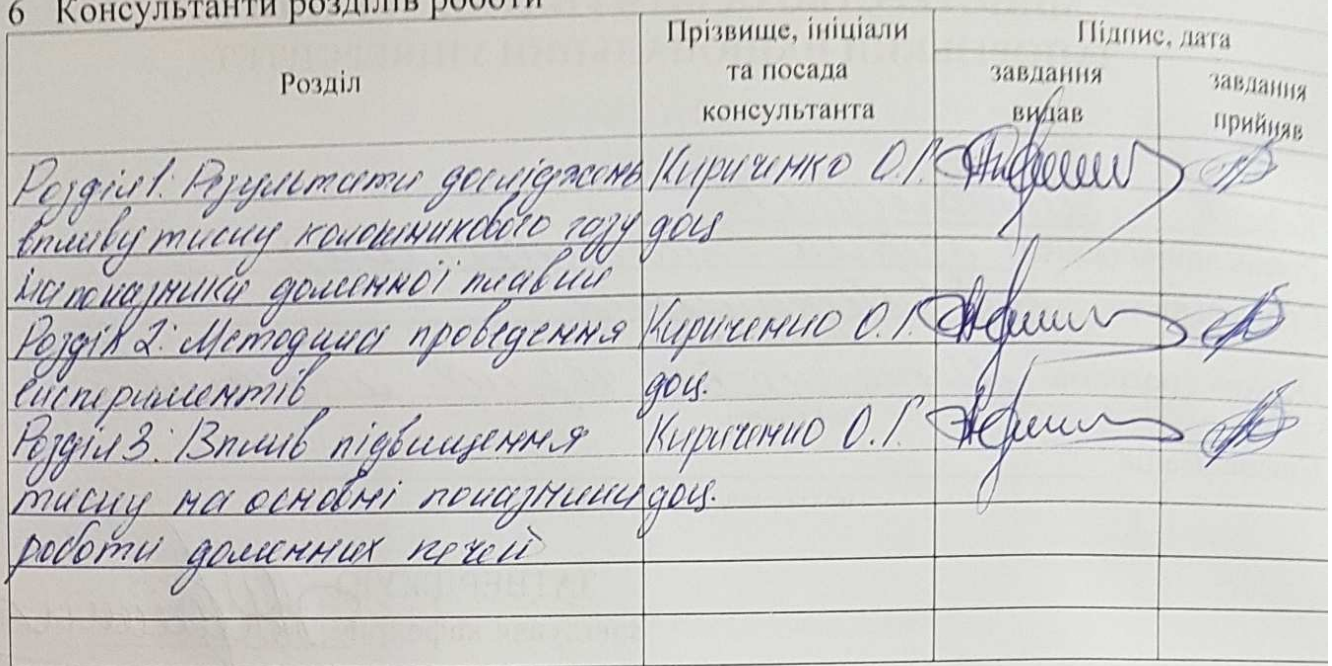 6 Консультанти розділів роботи
Розділ
Прізвище, ініціали
та посада
консультанта
Підпис, дата
завдання
видав
завдання
прийняв
Розділ 1: Результати досліджень
впливу тиску колошникового газу
на показники доменної плавки
Кириченко О.Г.
доц
Розділ 2: Методика проведення
експериментів
Кириченко О.Г.
доц.
Розділ 3: Вплив підвищення
тиску на основні показники
роботи доменних печей
Кириченко О.Г.
доц.